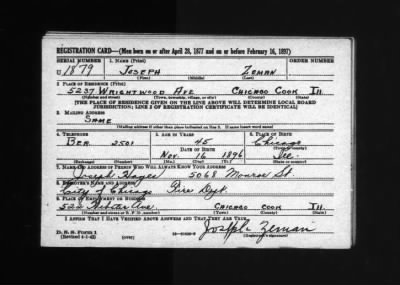 REGISTRATION CARD—(Men born on or after April 28, 1877 and on or before February 16, 1897)
SERIAL NUMBER 1. NAME (Print) ORDER NUMBER
U 1879 JOSEPH ZEMAN
(First) (Middle) (Last)
2. PLACE OF RESIDENCE (Print)
5237 WRIGHTWOOD AVE CHICAGO COOK ILL.
(Number and street) (Town, township, village, or city) (County) (State)
[THE PLACE OF RESIDENCE GIVEN ON THE LINE ABOVE WILL DETERMINE LOCAL BOARD
JURISDICTION; LINE 2 OF REGISTRATION CERTIFICATE WILL BE IDENTICAL]
3. MAILING ADDRESS
SAME
[Mailing address if other than place indicated on line 2. If same insert word same]
4. TELEPHONE 5. AGE IN YEARS 6. PLACE OF BIRTH
BER. 2501 45 Chicago
DATE OF BIRTH (Town or county)
Nov. 16 1896 Ill.
(Exchange) (Number) (Mo.) (Day) (Yr.) (State or country)
7. NAME AND ADDRESS OF PERSON WHO WILL ALWAYS KNOW YOUR ADDRESS
Joseph 5068 Monroe St.
8. EMPLOYER'S NAME AND ADDRESS
City of Chicago Fire Dept.
9. PLACE OF EMPLOYMENT OR BUSINESS
522 Webster Ave. CHICAGO COOK ILL.
(Number and street or R. F. D. number) (Town) (County) (State)
I AFFIRM THAT I HAVE VERIFIED ABOVE ANSWERS AND THAT THEY ARE TRUE.
D. S. S. FORM 1
(Revised 4-1-42) (over) Joseph Zeman
(Registrant's signature)